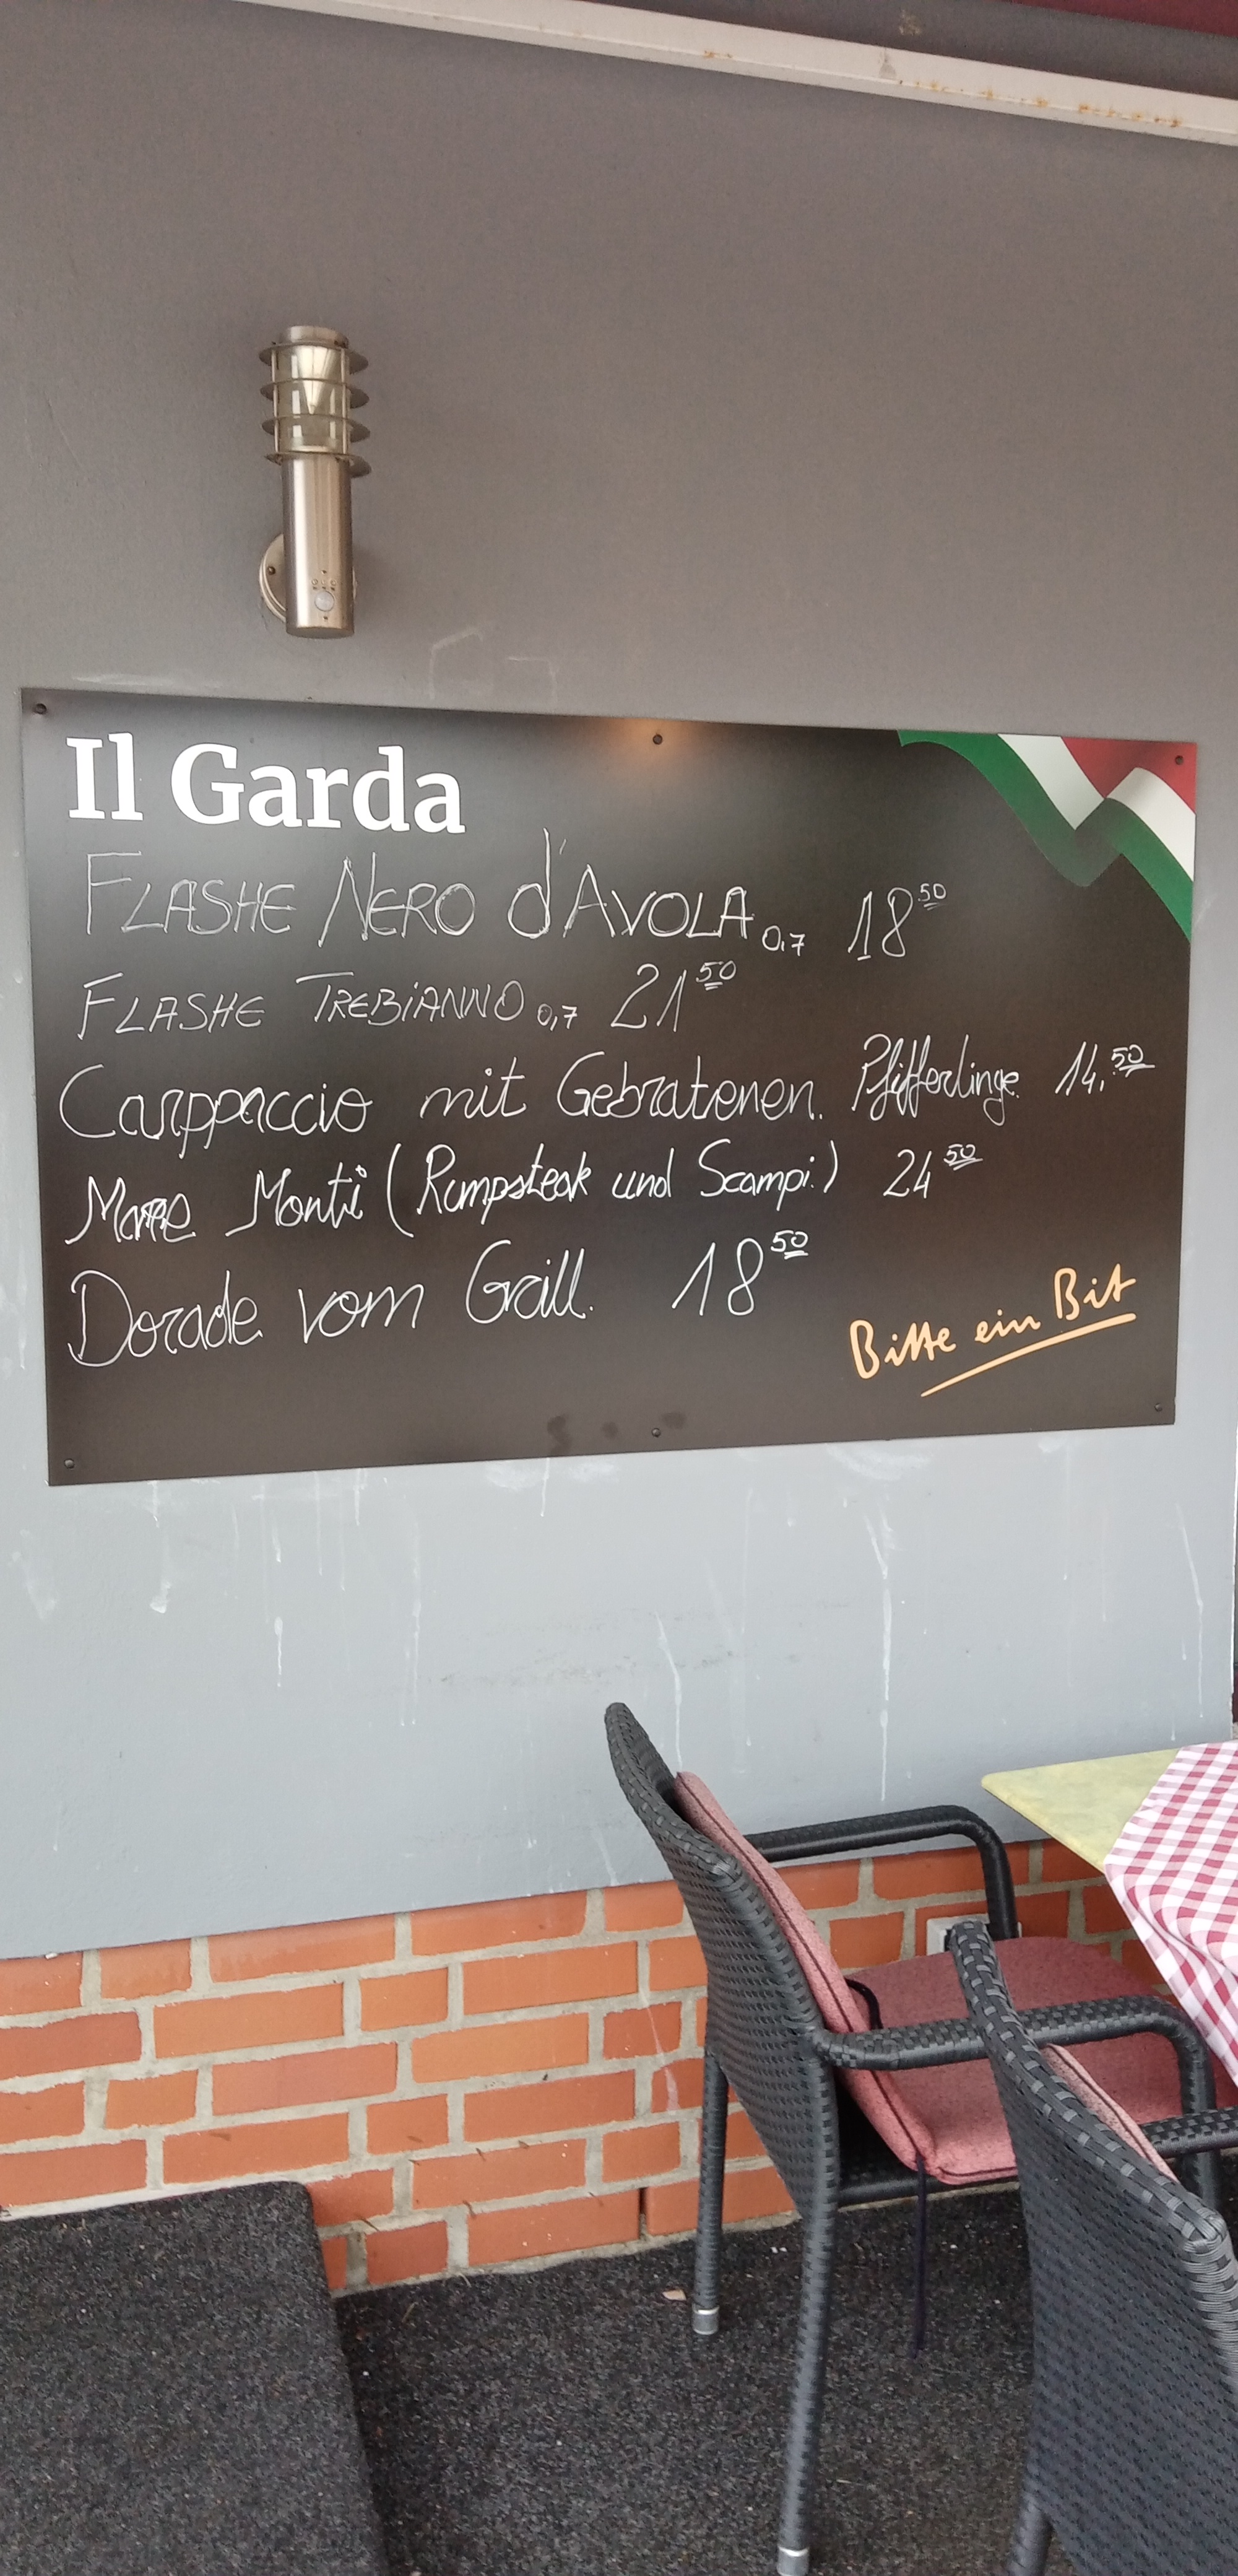 Il Garda
FLASHE NERO d'AVOLA 0,7 18 50
FLASHE TREBIANNO 0,7 21 50
Carppaccio mit Gebratenen. Pfifferlinge. 14,50
Mare Monti (Rumpsteak und Scampi.) 24 50
Dorade vom Grill. 18 50
Bitte ein Bit